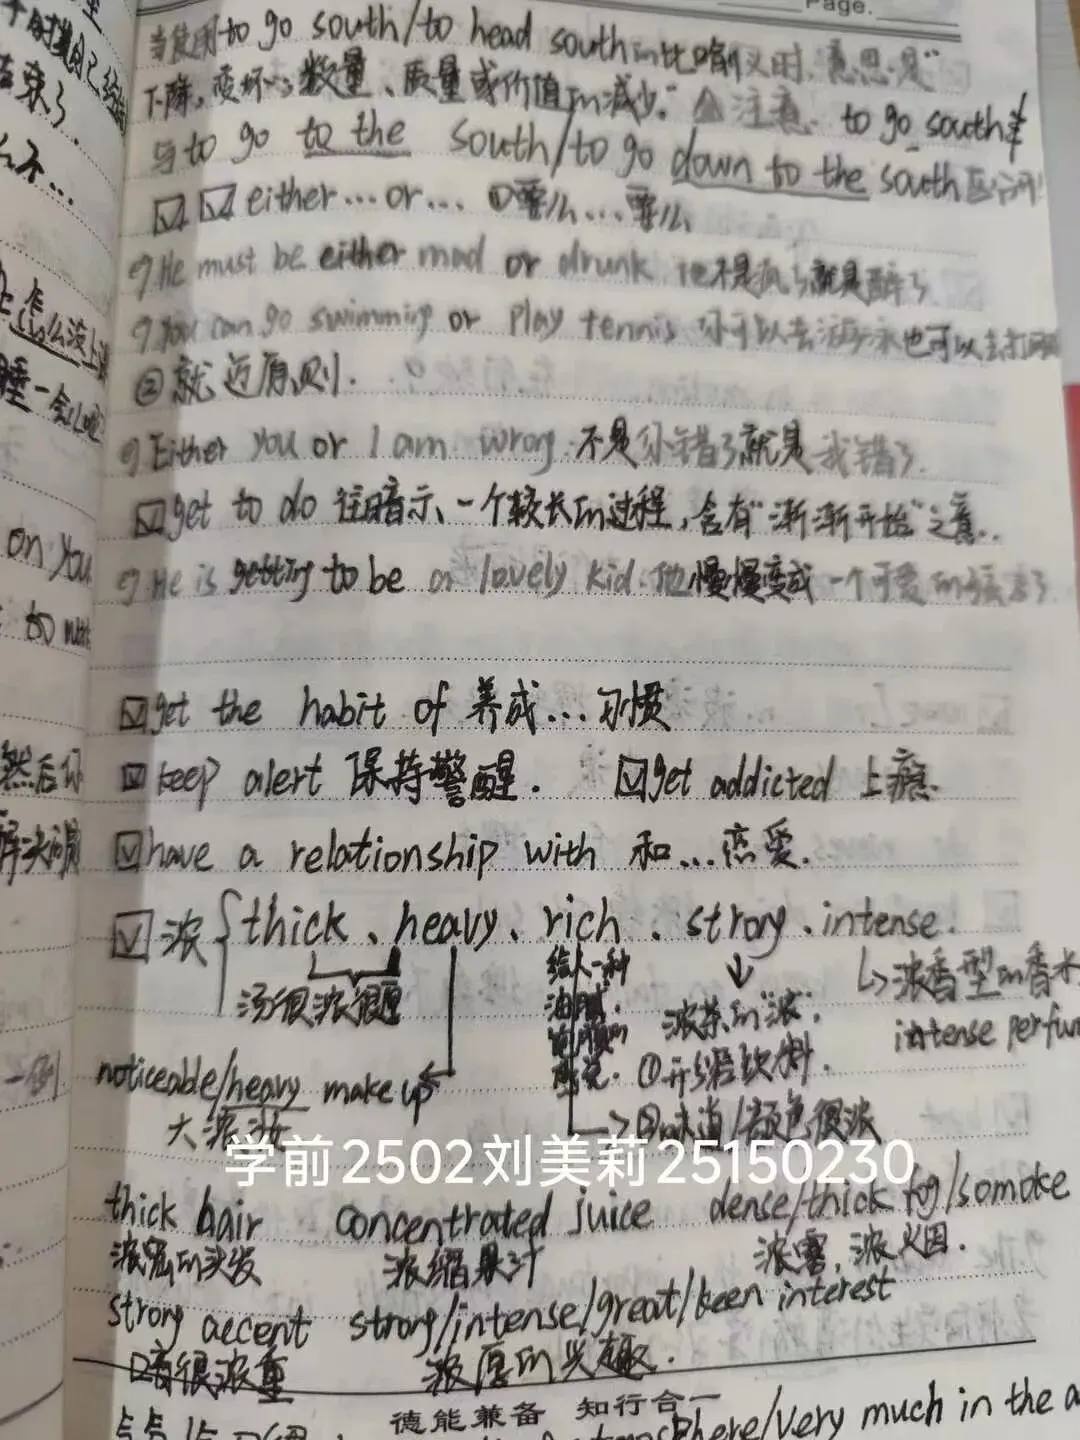 Page.
当使用to go south/to head south的比喻义时,意思是"
下降,变坏;数量、质量或价值的减少." 注意. to go south
与to go to the south/to go down to the south区分开!
either...or... ①要么...要么
He must be either mad or drunk 他不是疯了就是醉了
You can go swimming or play tennis 你可以去游泳也可以去打网
②就近原则.
Either you or I am wrong. 不是你错了就是我错了.
get to do 往往暗示、一个较长的过程,含有"渐渐开始"之意..
He is getting to be a lovely kid. 他慢慢变成一个可爱的孩子了
get the habit of 养成...习惯
keep alert 保持警醒.
get addicted 上瘾.
have a relationship with 和...恋爱.
浓 thick、heavy、rich、strong、intense.
汤很浓很
给人一种
油腻.
浓茶的"浓";
浓香型的香水
intense perfu
①形容饮料.
noticeable/heavy make up
②味道/颜色很浓
大浓妆
学前2502刘美莉25150230
thick hair concentrated juice dense/thick fog/somoke
浓密的头发 浓缩果汁 浓雾,浓烟.
strong accent strong/intense/great/keen interest
口音很浓重 浓厚的兴趣.
德能兼备 知行合一
/very much in the a
on you
然后你